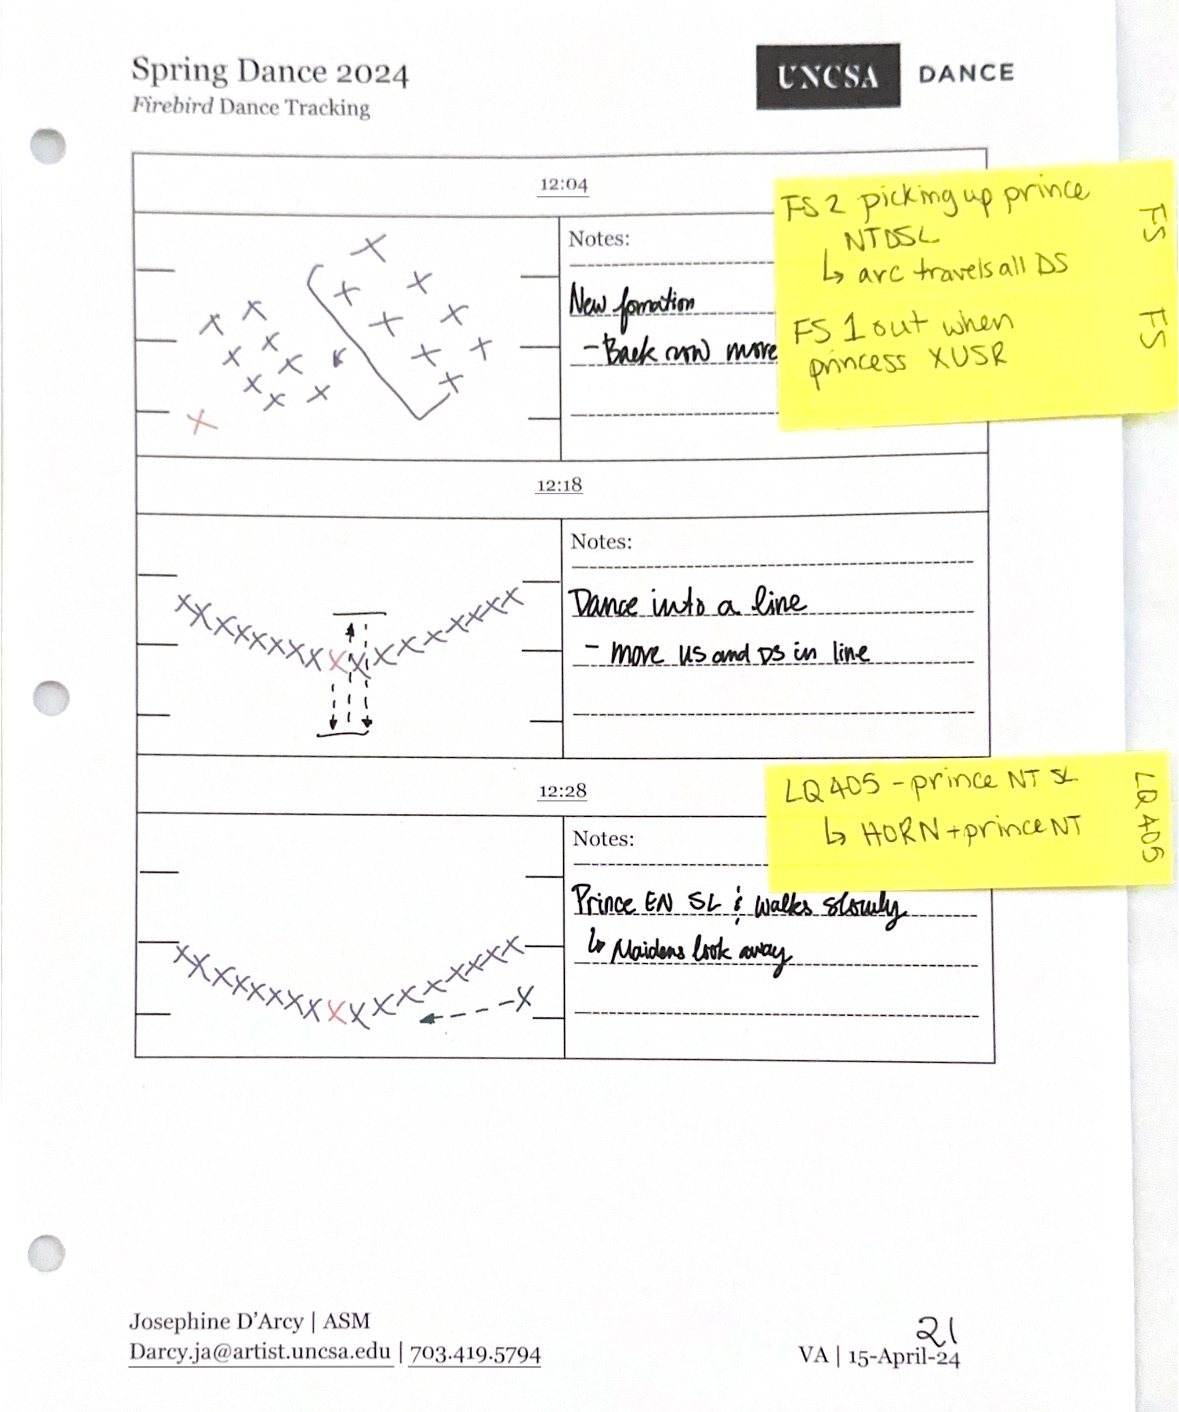 Spring Dance 2024
Firebird Dance Tracking
UNCSA DANCE
12:04
Notes:
New fomation
- Back row more
FS 2 picking up prince
NTDSL
↳ arc travels all DS
FS 1 out when
princess XUSR
FS
FS
12:18
Notes:
Dance into a line
- move US and DS in line
12:28
Notes:
LQ 405 - prince NT SL
↳ HORN + prince NT
LQ 405
Prince EN SL & walks slowly
↳ Maidens look away
Josephine D'Arcy | ASM
Darcy.ja@artist.uncsa.edu | 703.419.5794
21
VA | 15-April-24